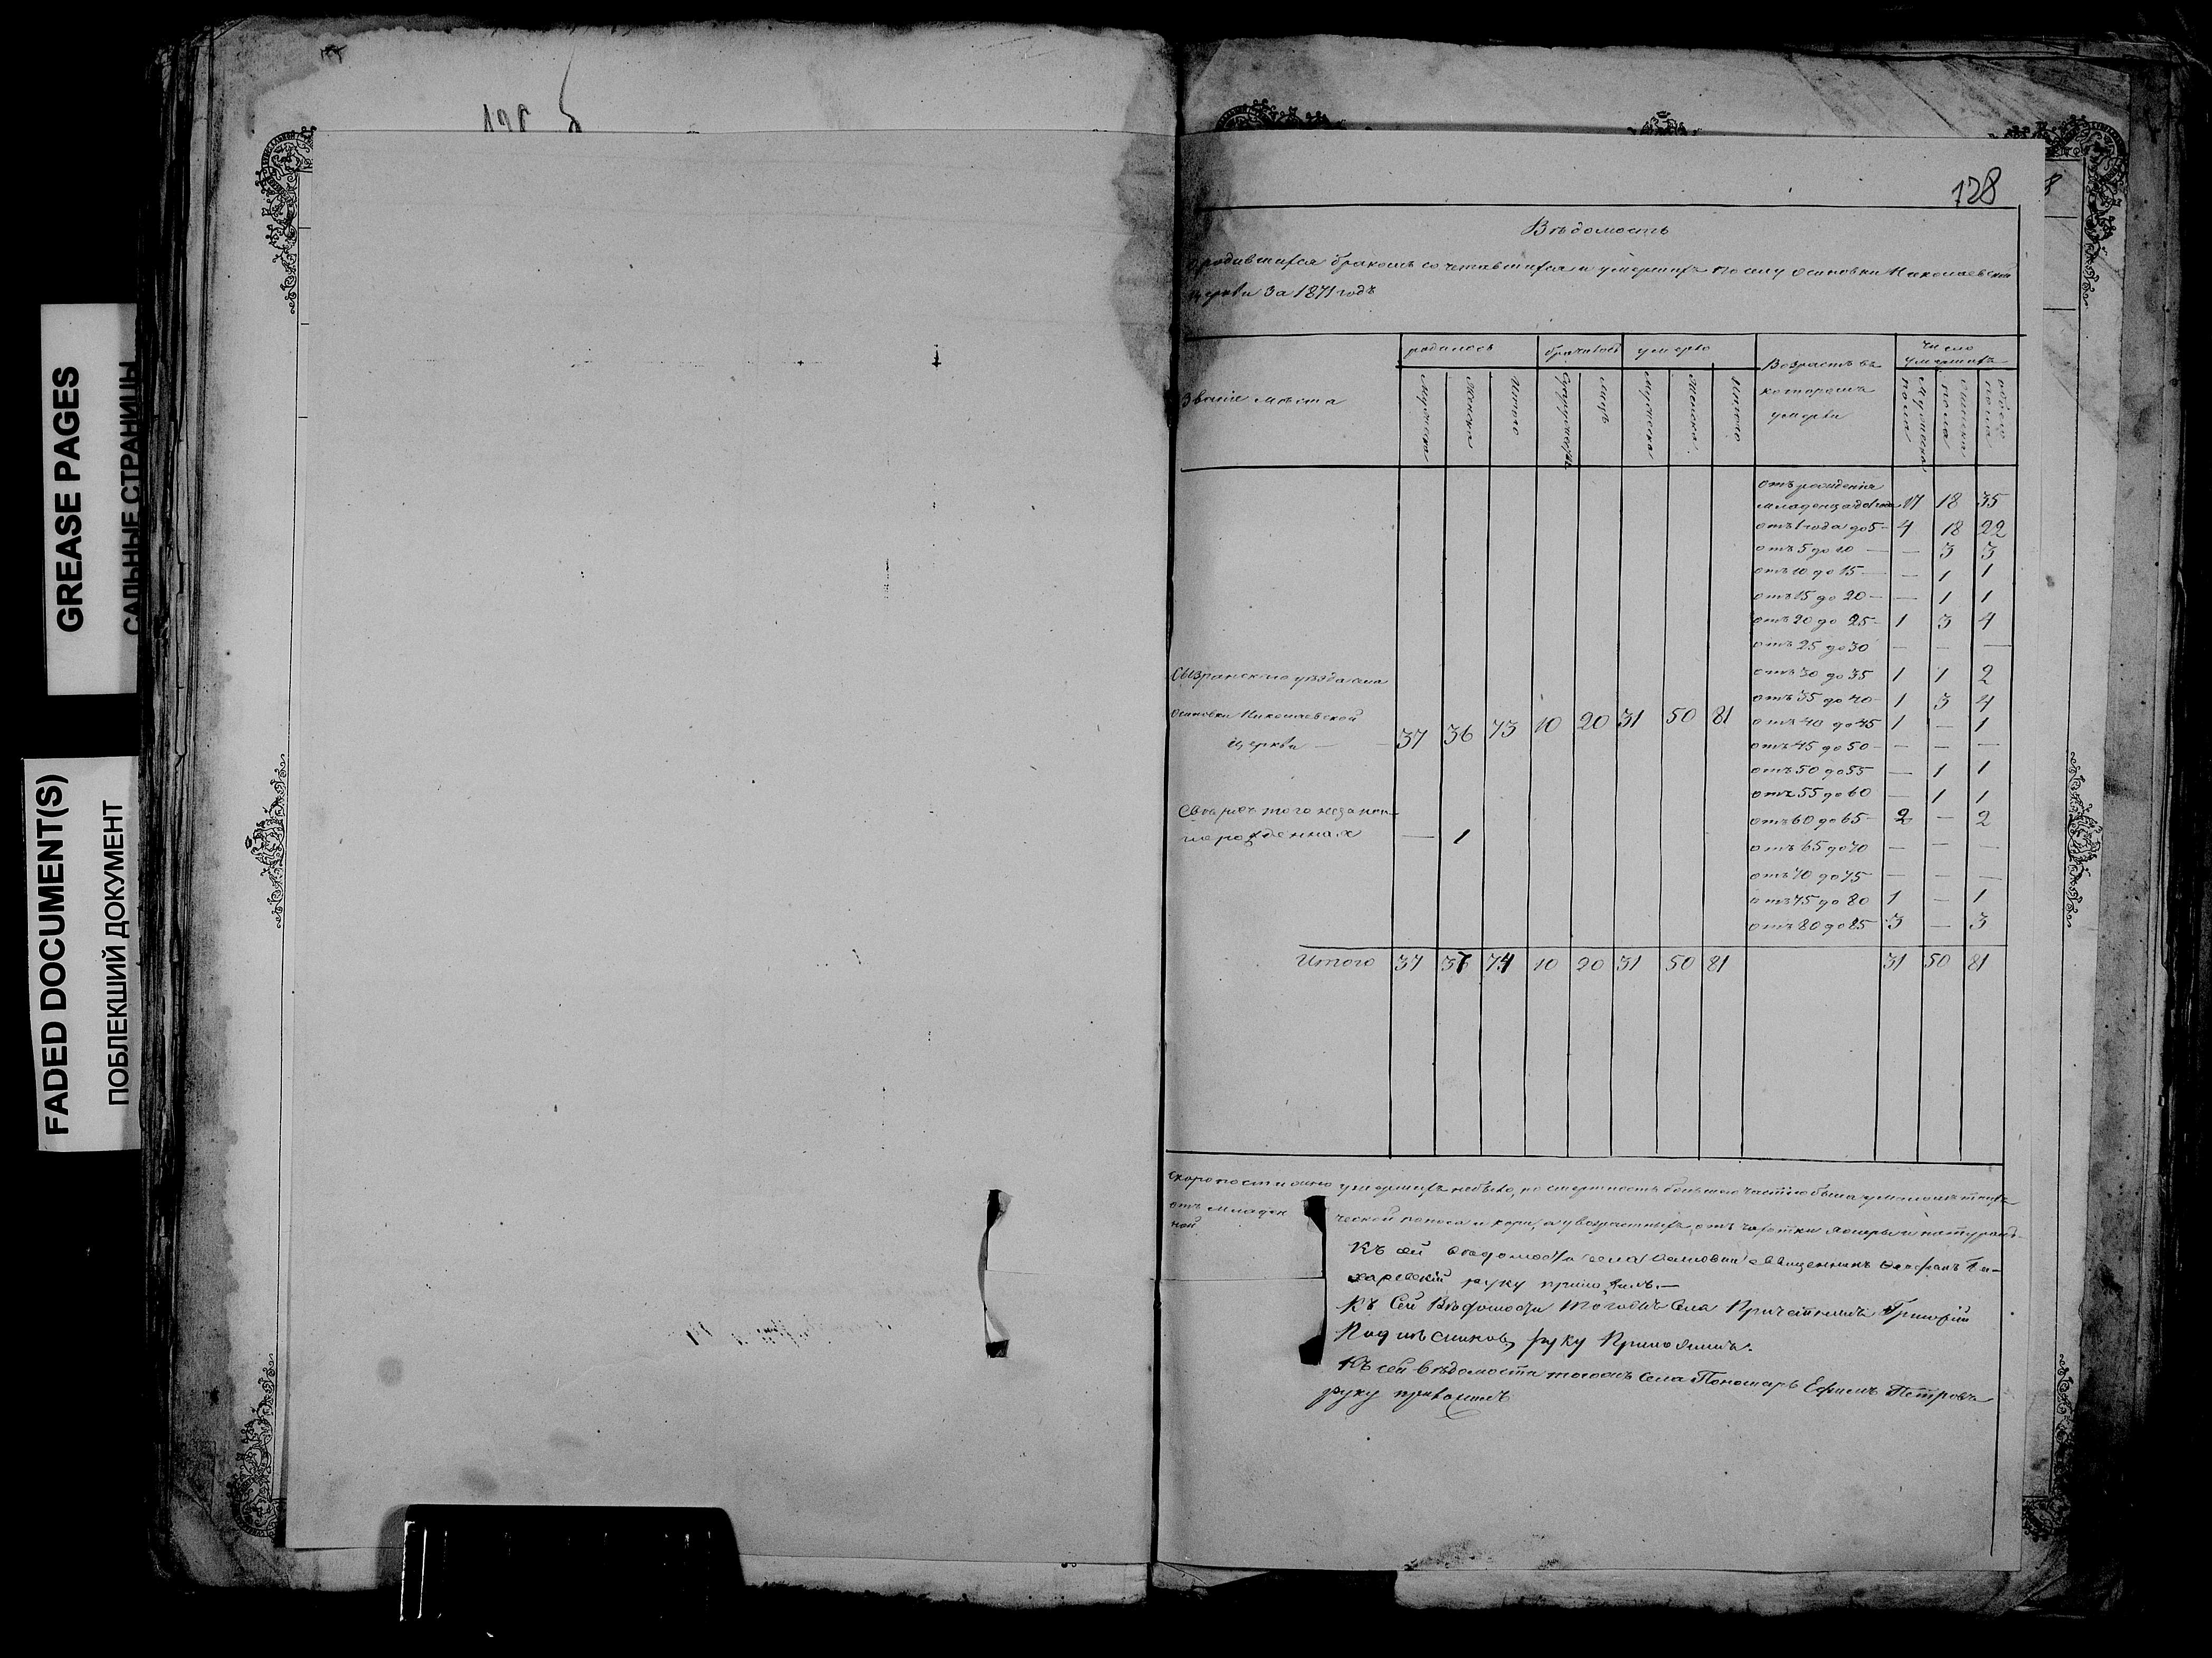 GREASE PAGES
САЛЬНЫЕ СТРАНИЦЫ
FADED DOCUMENT(S)
ПОБЛЕКШИЙ ДОКУМЕНТ
128
Вѣдомость
родившихся бракомъ сочетавшихся и умершихъ по селу Осиновки Николаевской
церкви за 1871 годъ
Званіе мѣста
родилось
браковъ
умерло
Возрастъ въ которомъ умерли
Число умершихъ
Мужеска Женска Итого Супружествъ Лицъ Мужеска Женска Итого
Мужеска пола Женска пола обоего пола
отъ рожденія
младенца до 1 года 17 18 35
отъ 1 года до 5 – 4 18 22
отъ 5 до 10 — — 3 3
отъ 10 до 15 — — 1 1
отъ 15 до 20 — — 1 1
отъ 20 до 25 – 1 3 4
отъ 25 до 30 — — —
отъ 30 до 35 1 1 2
отъ 35 до 40 – 1 3 4
отъ 40 до 45 1 — 1
отъ 45 до 50 – — — —
отъ 50 до 55 — 1 1
отъ 55 до 60 — 1 1
отъ 60 до 65 – 2 — 2
отъ 65 до 70 — — —
отъ 70 до 75 — — —
отъ 75 до 80 1 — 1
отъ 80 до 85 3 — 3
Сызранскаго уѣзда села
Осиновки Николаевской
церкви — 37 36 73 10 20 31 50 81
Сверхъ того
рожденная — 1
Итого 37 37 74 10 20 31 50 81 31 50 81
Скоропостижно умершихъ не было, но смертность большею частію была
отъ младен ческой поноса и кори, а у возрастныхъ отъ чахотки
ной
Къ сей вѣдомости села Осиновки священникъ
руку приложилъ. —
Къ Сей Вѣдомости тогожъ Села Причетникъ Григорій
руку Приложилъ.
Къ сей вѣдомости тогожъ Села Пономарь Ефимъ Петровъ
руку приложилъ